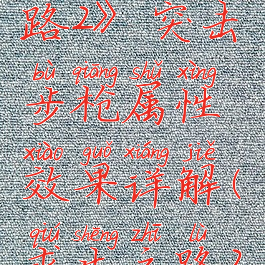 路2》 突击
bù qiāng shǔ xìng
步枪属性
xiào guǒ xiáng jiě
效果详解(
qiú shēng zhī lù